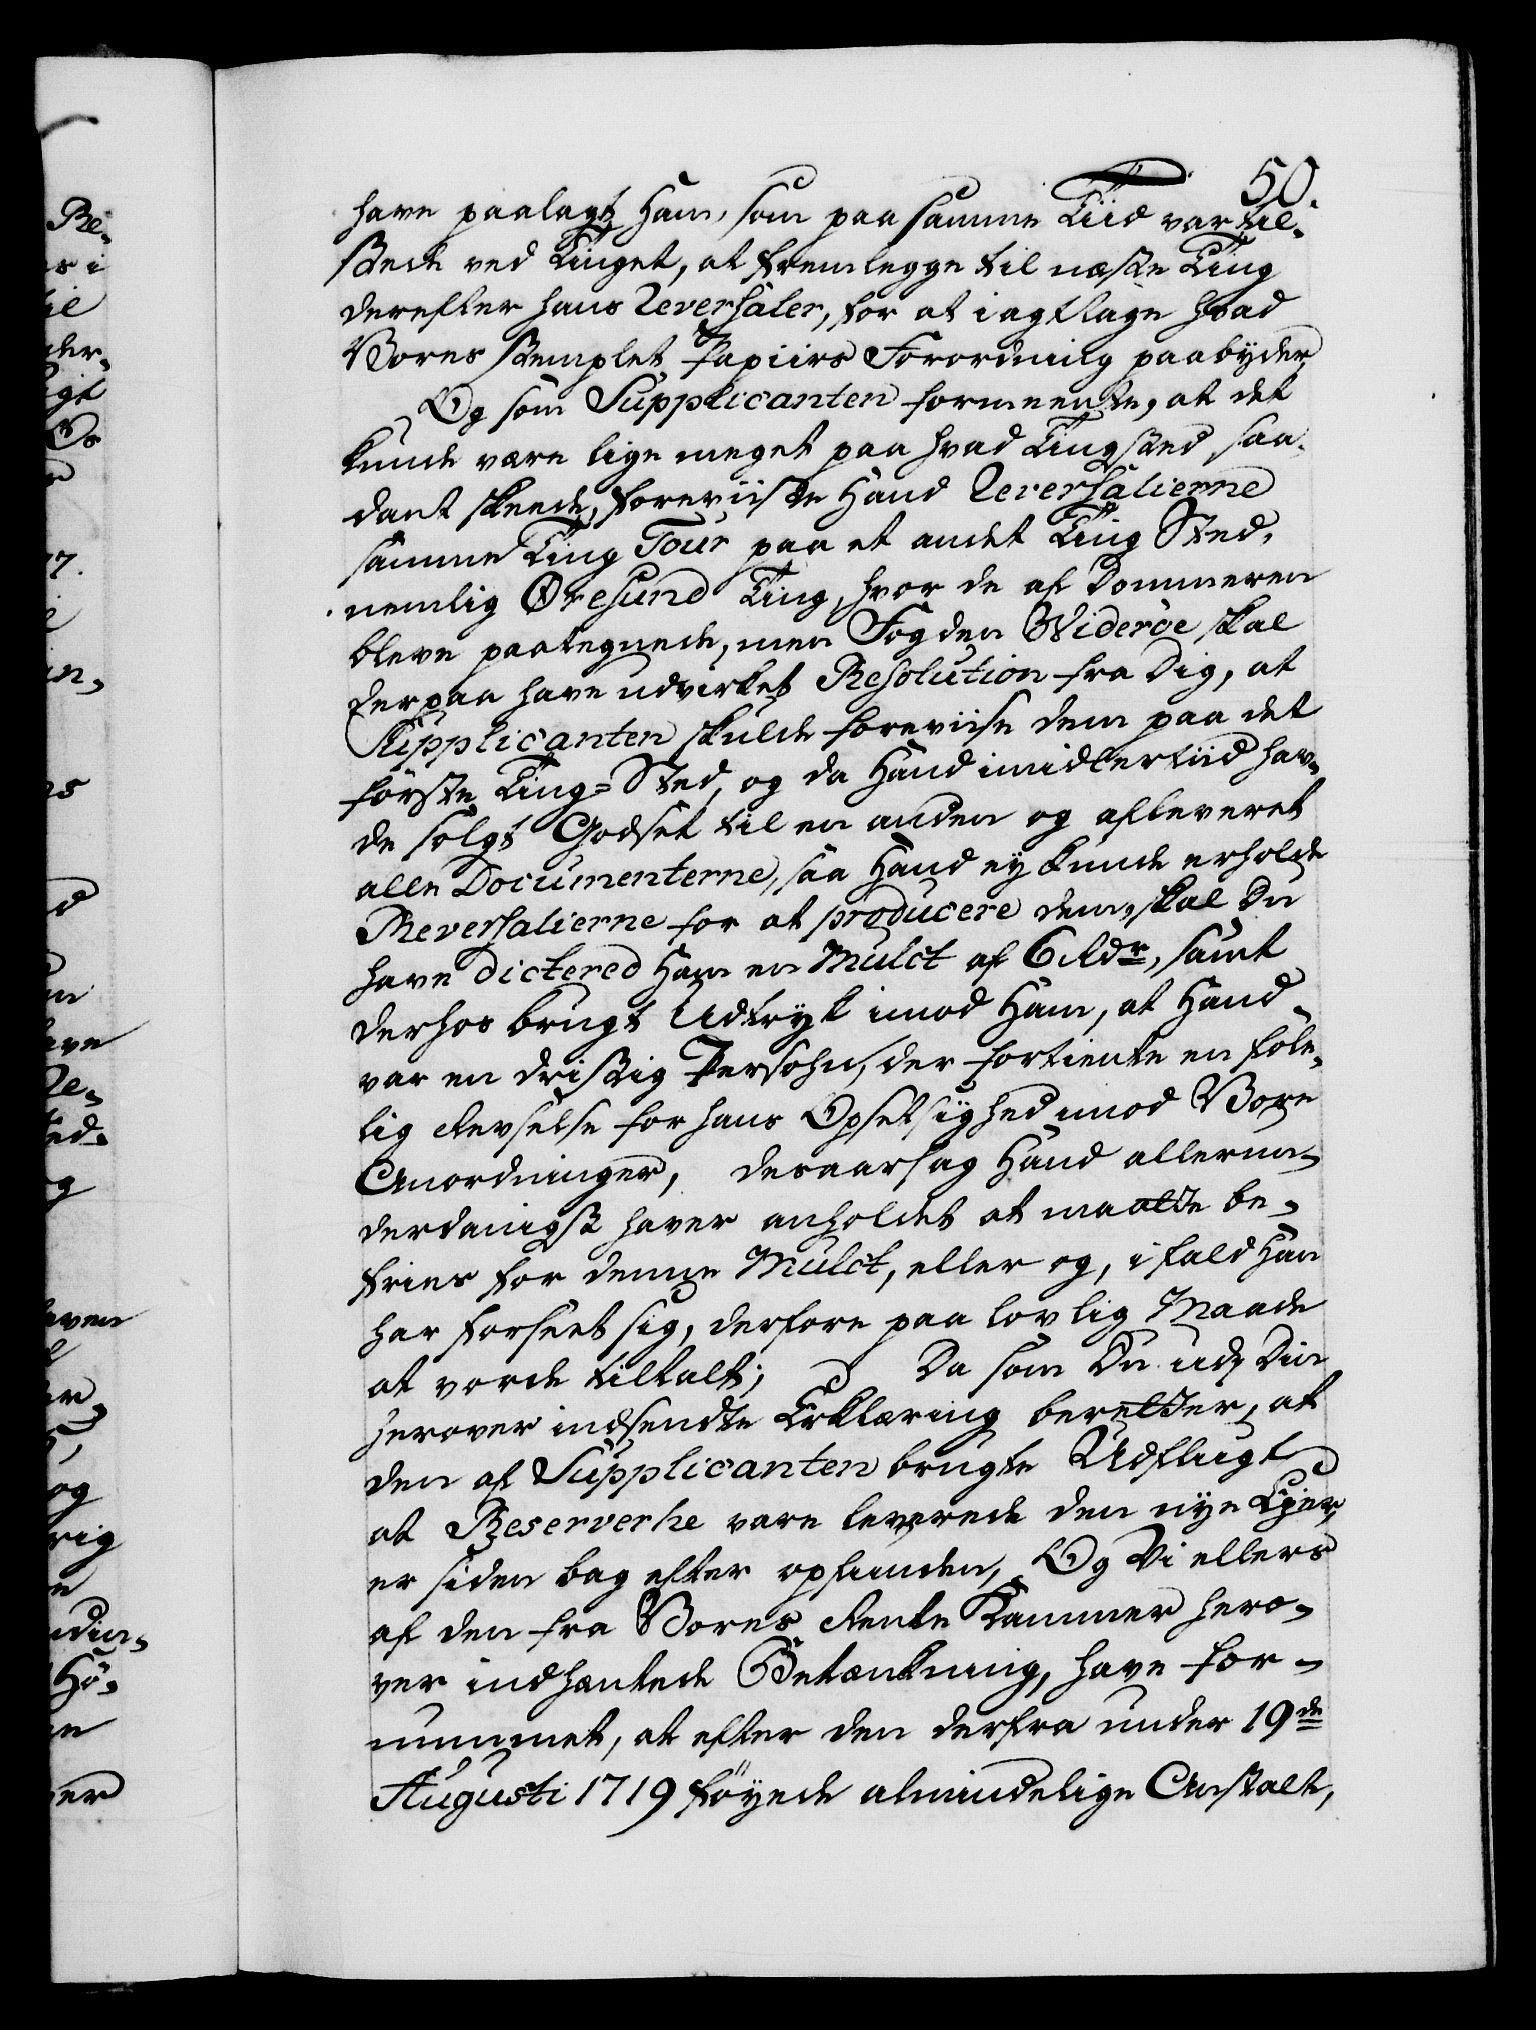 50.
have paalagt Ham, som paa samme Tiid var til-
stede ved Tinget, at fremlegge til næste Ting
derefter hans Reversaler, for at iagttage hvad
Vores stemplet Papiirs Forordning paabyder,
Og som Supplicanten formeente, at det
kunde være lige meget paa hvad Tingsted saa-
dant skeede, foreviiste Hand Reversalierne
samme Ting Tour paa et andet Ting Sted,
nemlig Øresund Ting, hvor de af Dommeren
bleve paategnede, men Fogden Widerøe skal
derpaa have udvirket Resolution fra Dig, at
Supplicanten skulde foreviise dem paa det
første Ting-Sted, og da Hand imidlertiid hav-
de solgt Godset til en anden og afleveret
alle Documenterne, saa Hand ey kunde erholde
Reversalierne for at producere dem, skal Du
have dictered Ham en Mulct af 6 Rdr, samt
derhos brugt Udtryk imod Ham, at Hand
var en dristig Persohn, der fortiente en føle-
lig Revselse for hans Opsetsighed imod Vore
Anordninger, desaarsag Hand allerun-
derdanigst haver anholdet at maatte be-
fries for denne Mulct, eller og, i fald Han
har forseet sig, derfore paa lovlig Maade
at vorde tiltalt; Da som Du udj Din
herover indsendte Erklæring beretter, at
den af Supplicanten brugte Udflugt
at Reserverne vare leverede den nye Ejer,
er siden bag efter opfunden, Og Vi ellers
af den fra Vores Rente Kammer hero-
ver indhæntede Betænkning, have for-
nummet, at efter den derfra under 19de
Augusti 1719 føyede almindelige Anstalt,
Re-
s i
til
der-
gt
Os
77.
an,
ave
Re-
ed.
og
aven
er,
og
rig
Hø-
er